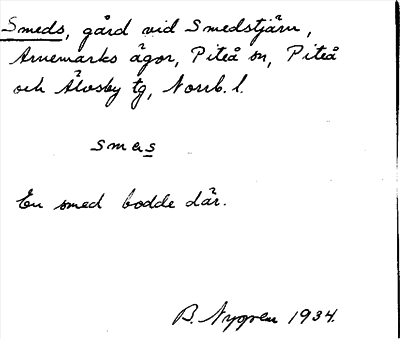 Smeds, gård vid Smedstjärn,
Arnemarks ägor, Piteå sn, Piteå
och Älvsby tg, Norrb. l.
smes
En smed bodde där.
B. Nygren 1934.